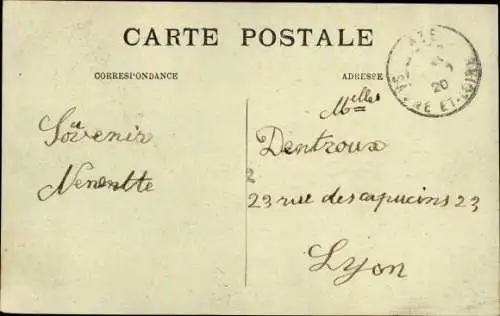 CARTE POSTALE
CORRESPONDANCE
ADRESSE
AZÉ
20
SAÔNE ET-LOIRE
Souvenir
Melles
Dentroux
2
23 rue des capucins 23
Lyon